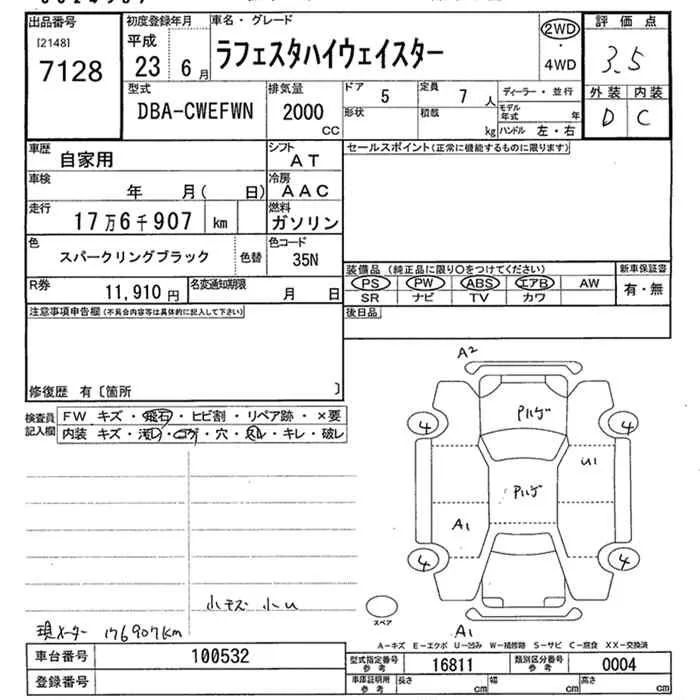 出品番号 初度登録年月 車名・グレード 2WD・4WD 評価点
[2148] 7128 平成 23 6月 ラフェスタハイウェイスター 3.5
型式 排気量 ドア 5 定員 7人 ディーラー・並行 外装 内装
DBA-CWEFWN 2000cc 形状 積載 kg モデル年式 年 D C
ハンドル 左・右
車歴 自家用 シフト AT セールスポイント(正常に機能するものに限ります)
車検 年 月( 日) 冷房 AAC
走行 17万6千907 km 燃料 ガソリン
色 スパークリングブラック 色替 色コード 35N
装備品 (純正品に限り○をつけてください) 新車保証書
PS PW ABS エアB AW 有・無
R券 11,910円 名変通知期限 月 日 SR ナビ TV カワ
注意事項申告欄 (不具合内容等は具体的に記入して下さい) 後日品
修復歴 有〔箇所 〕
検査員記入欄 FW キズ・飛石・ヒビ割・リペア跡・×要
内装 キズ・汚レ・コゲ・穴・スレ・キレ・破レ
A2
4 アルゲ 4
アルゲ U1
A1
4 4
小キズ 小U
スペア
A1
現メーター 176907km
A-キズ E-エクボ U-凹み W-補修跡 S-サビ C-腐食 XX-交換済
車台番号 100532 型式指定番号 参考 16811 類別区分番号 参考 0004
登録番号 車庫証明用 参考 長さ cm 幅 cm 高さ cm